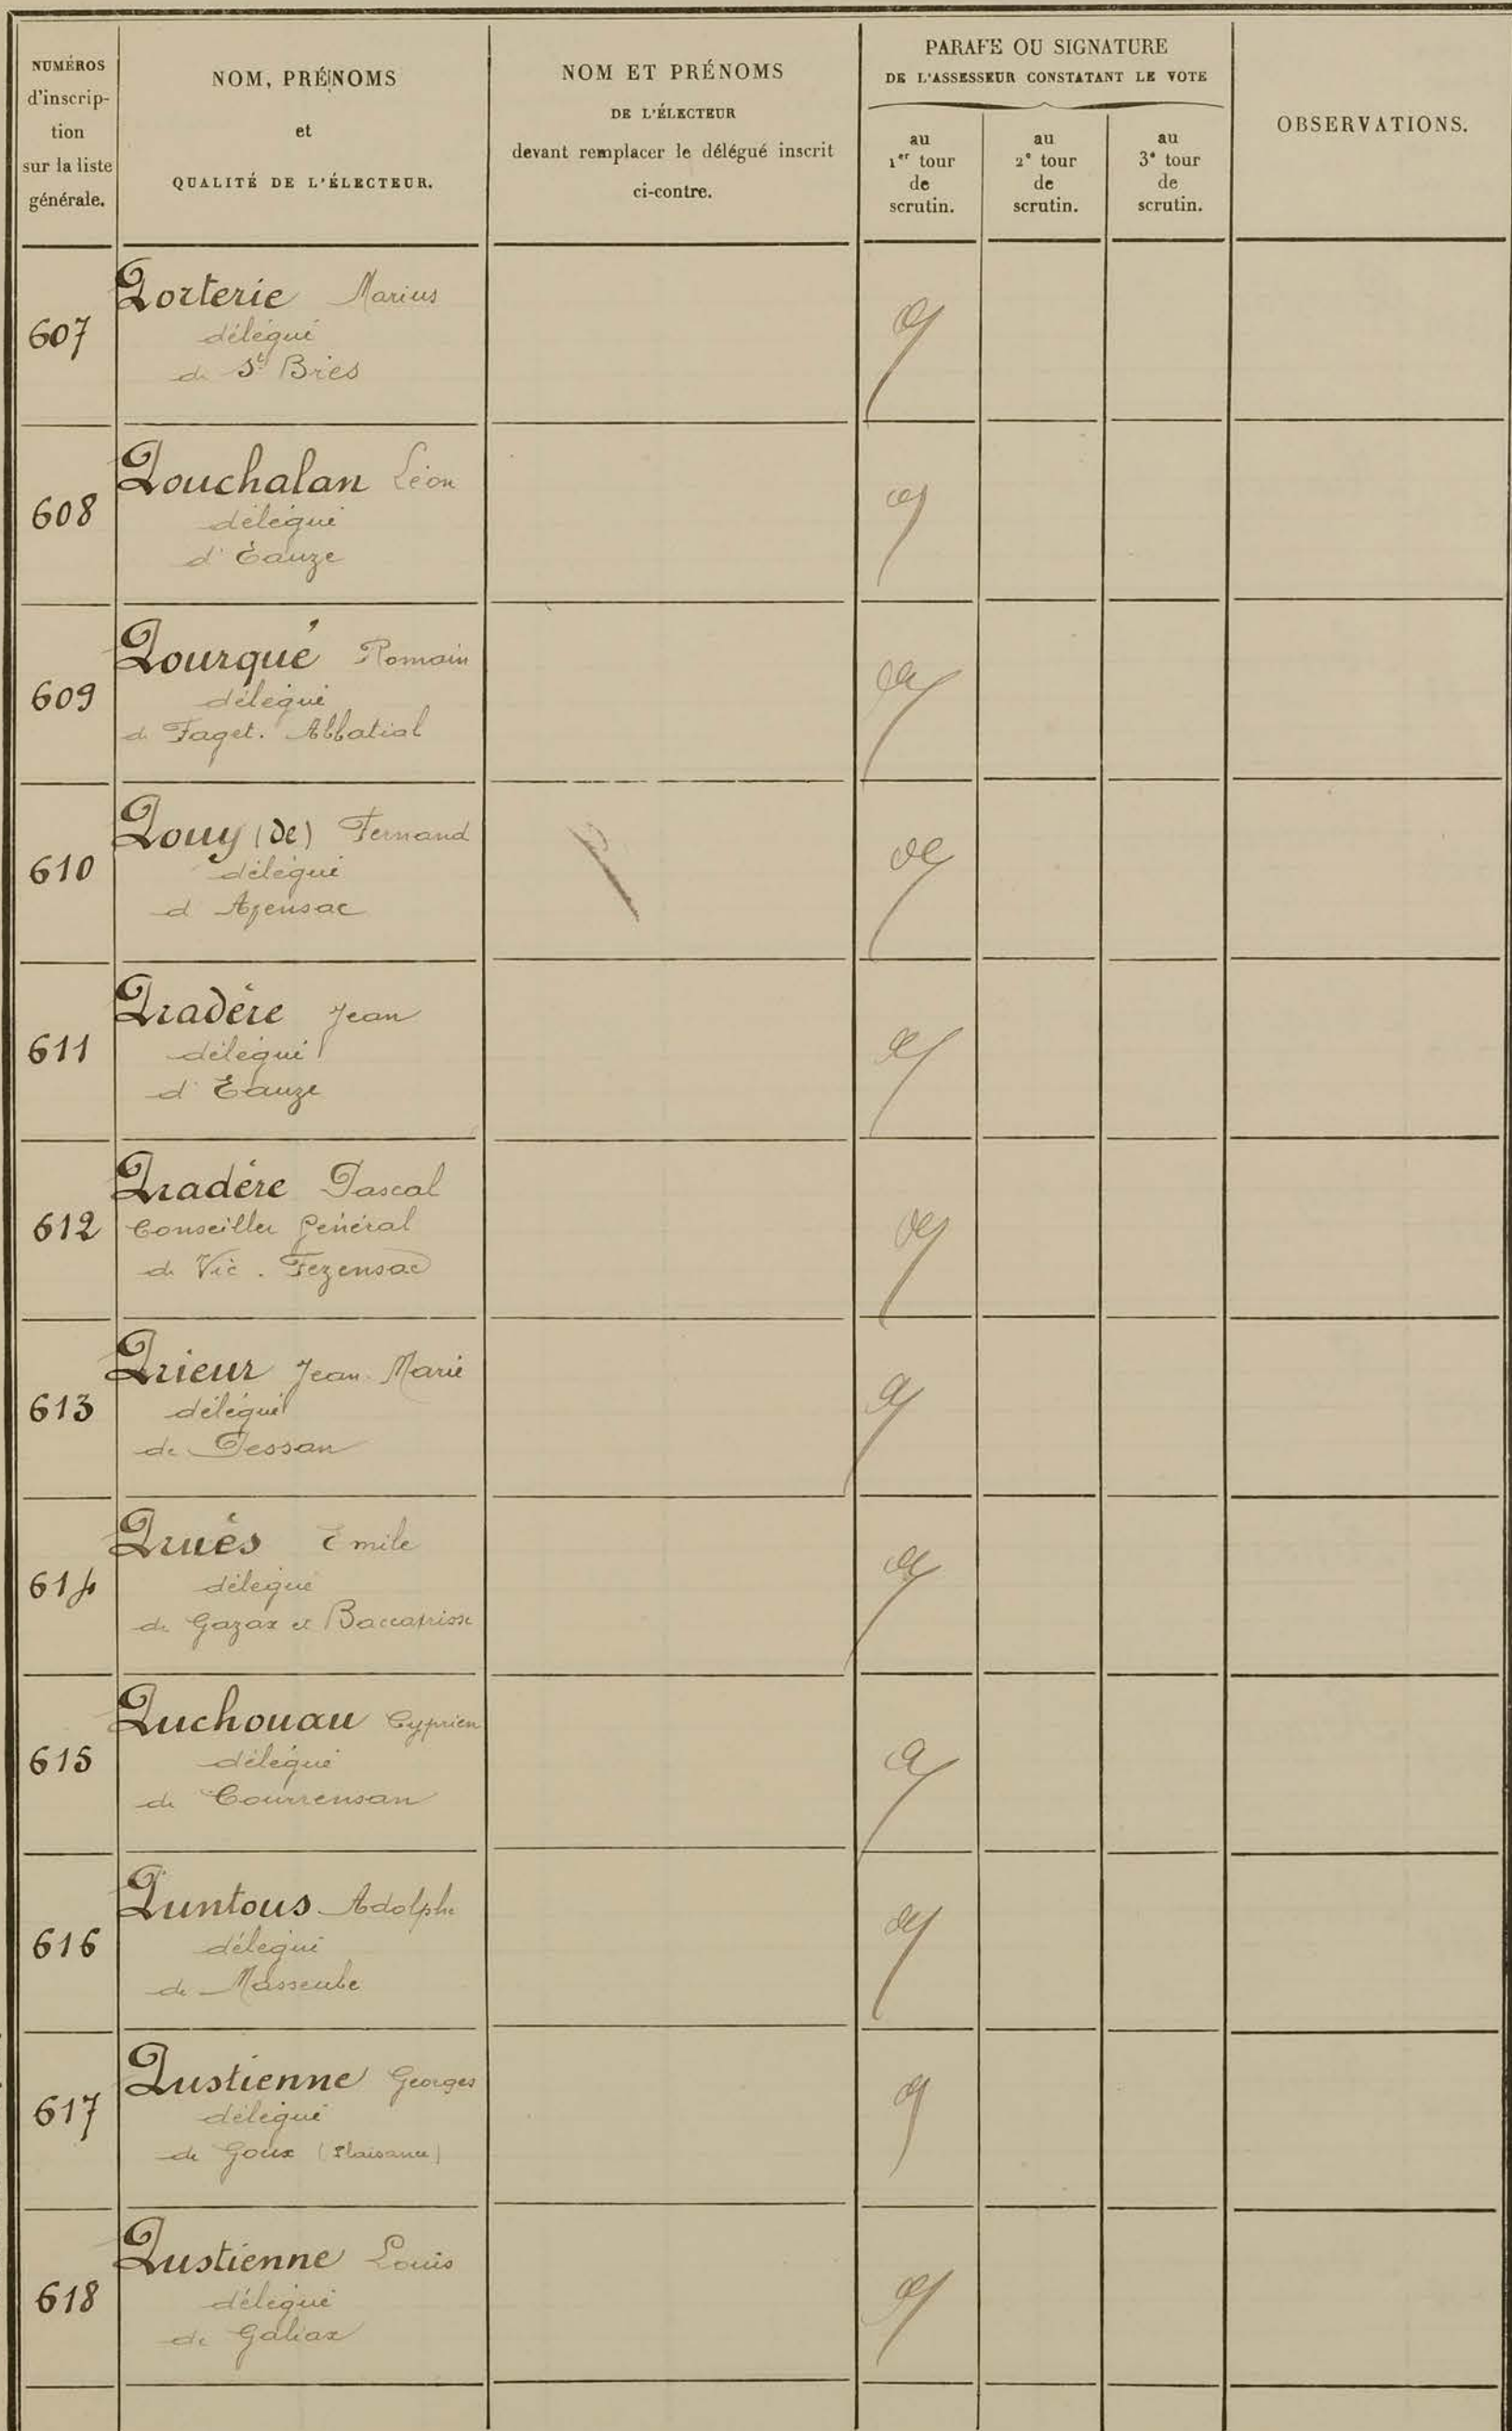 NUMÉROS
d'inscrip-
tion
sur la liste
générale.
NOM, PRÉNOMS
et
QUALITÉ DE L'ÉLECTEUR.
NOM ET PRÉNOMS
DE L'ÉLECTEUR
devant remplacer le délégué inscrit
ci-contre.
PARAFE OU SIGNATURE
DE L'ASSESSEUR CONSTATANT LE VOTE
au
1er tour
de
scrutin.
au
2e tour
de
scrutin.
au
3e tour
de
scrutin.
OBSERVATIONS.
607
Porterie Marius
délégué
de St Brès
608
Pouchalan Léon
délégué
d'Eauze
609
Pourqué Romain
délégué
de Faget. Abbatial
610
Pouy (de) Fernand
délégué
d'Ayensac
611
Pradère Jean
délégué
d'Eauze
612
Pradère Pascal
Conseiller Général
de Vic. Fezensac
613
Prieur Jean Marie
délégué
de Pessan
614
Pruès Emile
délégué
de Gazax et Baccarisse
615
Puchouau Cyprien
délégué
de Courrensan
616
Puntous Adolphe
délégué
de Masseube
617
Pustienne Georges
délégué
de Goux (Plaisance)
618
Pustienne Louis
délégué
de Galiax